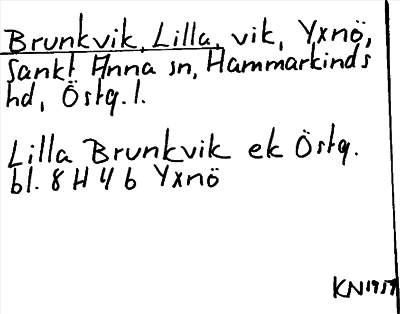 Brunkvik, Lilla, vik, Yxnö,
Sankt Anna sn, Hammarkinds
hd, Östg. l.
Lilla Brunkvik ek Östg.
bl. 8 H 4 b Yxnö
KN 1957